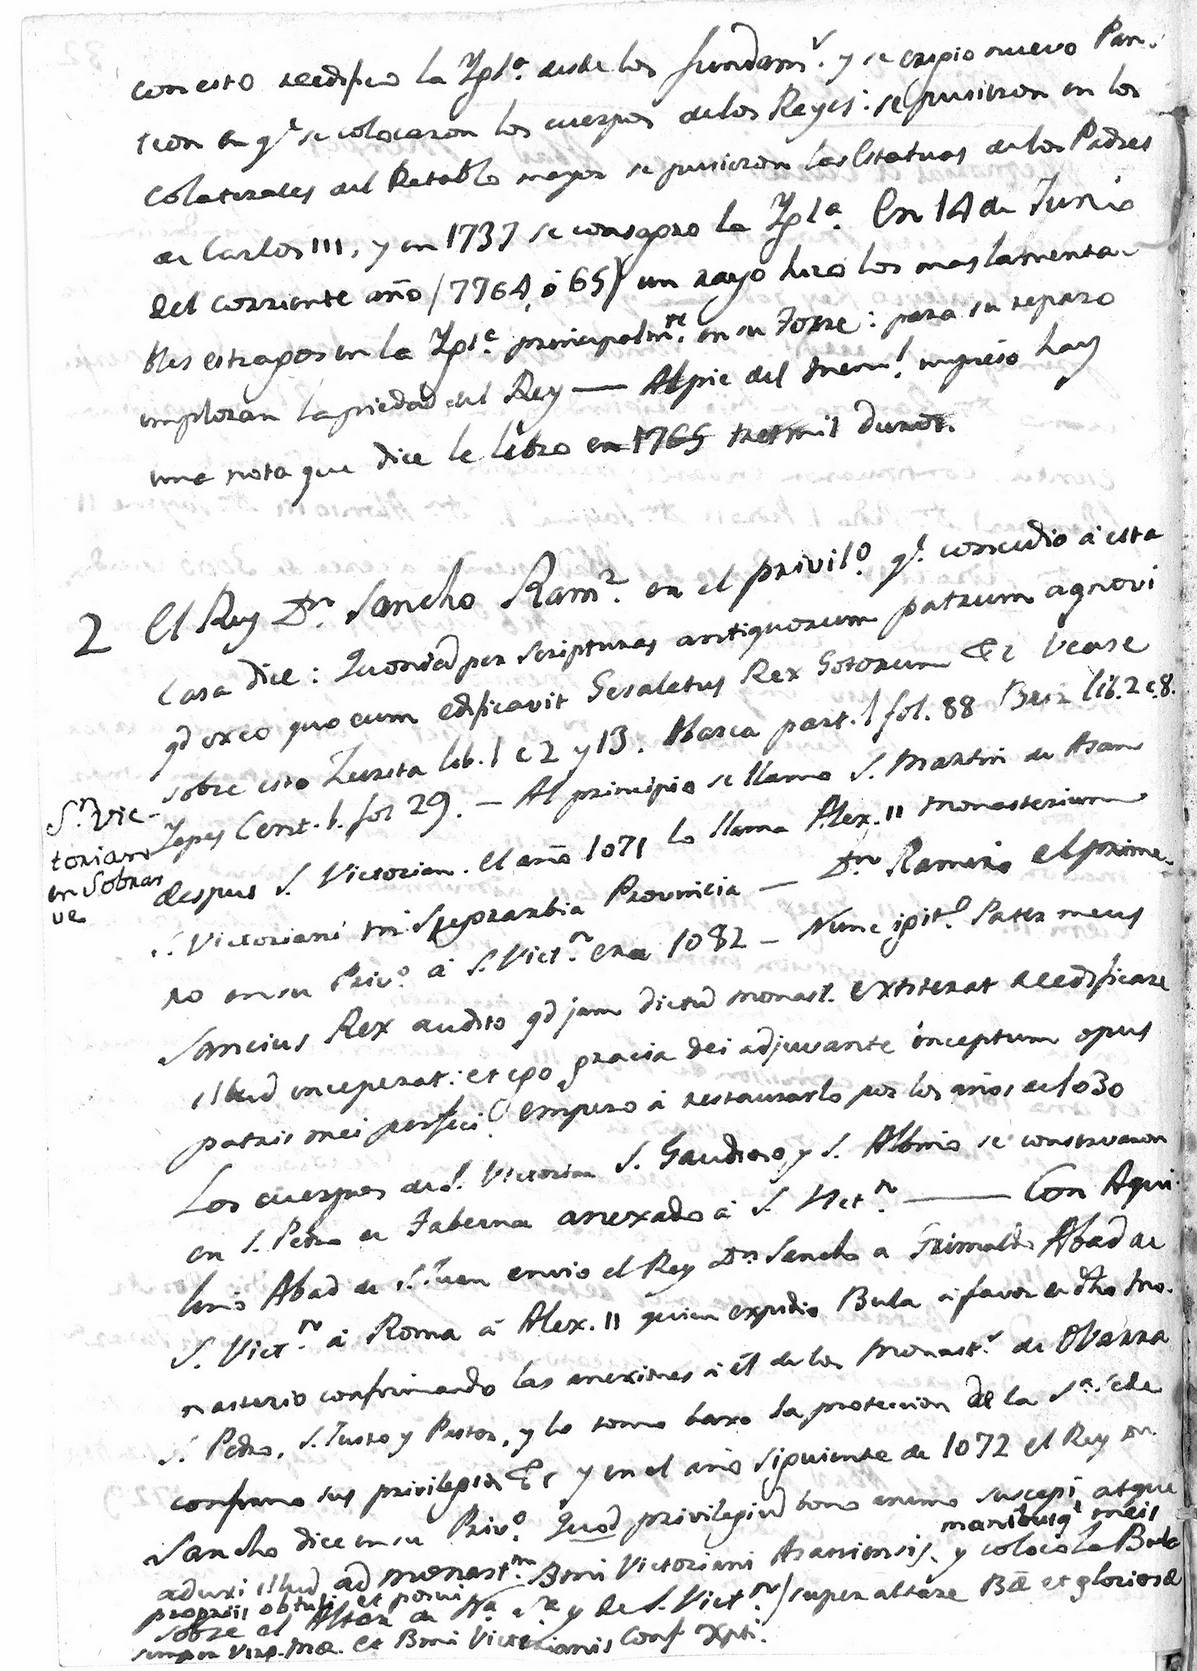 con esto reedifico la Ygla. desde los fundamv. y se erigio nuevo Pan-
teon en qe. se colocaron los cuerpos de los Reyes: se pusieron en los
Colaterales del Retablo mayor se pusieron las Estatuas de los Padres
de Carlos III, y en 1737 se consagro la Ygla. En 14 de Junio
del corriente año (1764, ó 65) un rayo hizo los mas lamenta-
bles estragos en la Ygla. principalmte. en su Torre: para su reparo
imploran la piedad del Rey — Al pie del meml. impreso hay
una nota que dice le libro en 1765 tres mil duros.
2 El Rey Dn. Sancho Ramz. en el privilo. qe. concedio á esta
Casa dice: Quoniad per scripturas antiquorum patrum agnovi
qd ex eo quo eum edificavit Gesaletus Rex Gotorum &c Vease
sobre esto Zurita lib. 1 c 2 y 13. Abarca part. 1 fol. 88 Briz lib. 2 c. 8.
Yepes Cent. 1. fol 29. — Al principio se llamo S. Martin de Asan
despues S. Victorian. el año 1071 lo llama Alex. II Monasterium
S. Victoriani in Provincia — Dn. Ramiro el prime-
Sn. Vic-
torian
en Sobrar
ve
ro en su Privo. á S. Victn. era 1082 — Nunc igito. Pater meus
Sancius Rex audito qd jam dictud monast. extiterat reedificare
illud inceperat: et ego gracia dei adjuvante inceptum opus
patris mei perfeci. Empezo á restaurarlo por los años de 1030
Los cuerpos de S. Victorian S. Gaudioso y S. Albino se conservaron
en S. Pedro de Taberna anexado á S. Victn. — Con Aqui-
lino Abad de S. Juan envio el Rey Dn Sancho a Grimaldo Abad de
S. Victn. á Roma á Alex. II quien expidio Bula a favor de dho Mo-
nasterio confirmando las anexiones á él de los Monastv. de Obarra
S. Pedro, S. Justo y Pastor, y lo tomo baxo la proteccion de la Sa. Sede
confirmo sus privilegios &c y en el año siguiente de 1072 el Rey Dn
Sancho dice en su Privo. Quod privilegiud bono animo suscepi atque
manibusqe meis
aduxi illud ad monastm. Bmi Victoriani Asaniensis, y coloco la Bula
propriis obtuli et posui
sobre el Altar de Na. Sra y de S. Victn.) super altare Bæ et gloriosæ
semper Virg. Mæ. et Bmi Victorianis Conf Xpti.